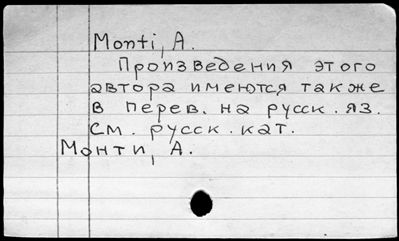 Monti, A.
Произведения этого
автора имеются также
в перев. на русск. яз.
См. русск. кат.
Монти, А.